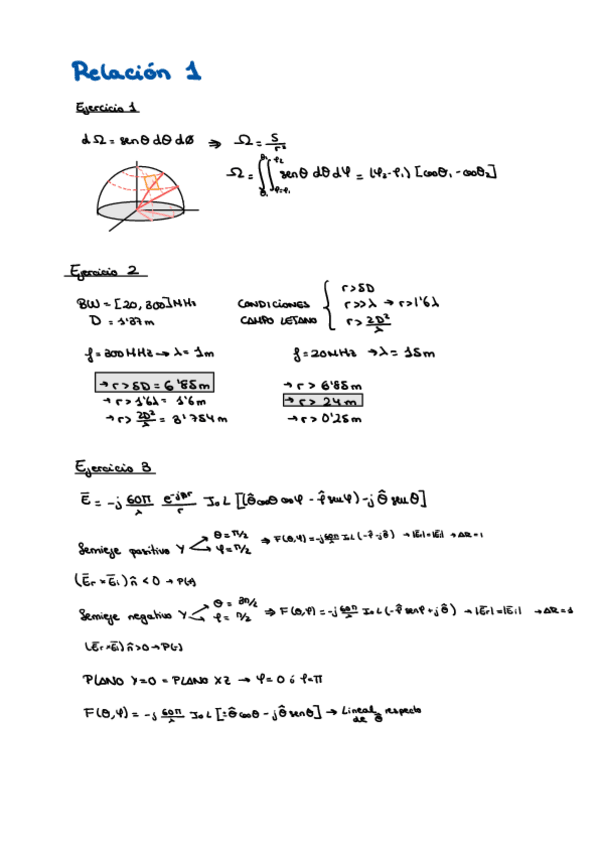 Relación 1
Ejercicio 1
dΩ = senθ dθ dø ⇒ Ω = S/r²
Ω = ∬ senθ dθ dφ = (φ₂-φ₁) [cosθ₁ - cosθ₂]
Ejercicio 2
BW = [20, 300] MHz
D = 1'37m
CONDICIONES CAMPO LEJANO
r > 5D
r >> λ → r > 1'6λ
r > 2D²/λ
f = 300 MHz → λ = 1m
→ r > 5D = 6'85m
→ r > 1'6λ = 1'6m
→ r > 2D²/λ = 3'754m
f = 20MHz → λ = 15m
→ r > 6'85m
→ r > 24m
→ r > 0'25m
Ejercicio 3
Ē = -j 60π/λ e^-jβr/r I₀ L [(θ̂ cosθ cosφ - φ̂ senφ) - j θ̂ senθ]
Semieje positivo Y
θ = π/2
φ = π/2
⇒ F(θ,φ) = -j 60π/λ I₀L (-φ̂ - jθ̂) → |Er| = |Ei| → AR = 1
(Ēr × Ēi) n̂ < 0 →
Semieje negativo Y
θ = 3π/2
φ = π/2
⇒ F(θ,φ) = -j 60π/λ I₀ L (-φ̂ senφ + jθ̂) → |Er| = |Ei| → AR = 1
(Ēr × Ēi) n̂ > 0 →
PLANO Y=0 = PLANO XZ → φ = 0 ó φ = π
F(θ,φ) = -j 60π/λ I₀ L [±θ̂ cosθ - jθ̂ senθ] → Lineal respecto
de θ̂